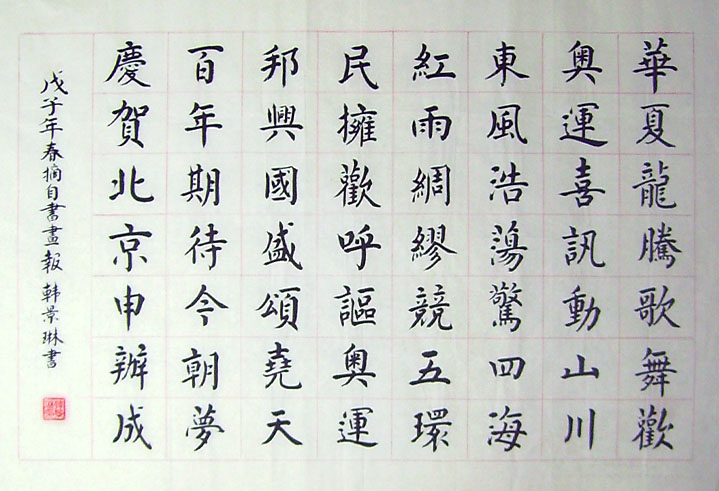 華夏龍騰歌舞歡
奥運喜訊動山川
東風浩蕩驚四海
紅雨綢繆競五環
民擁歡呼謳奥運
邦興國盛頌堯天
百年期待今朝夢
慶賀北京申辦成
戊子年春摘自書畫報 韩景琳書